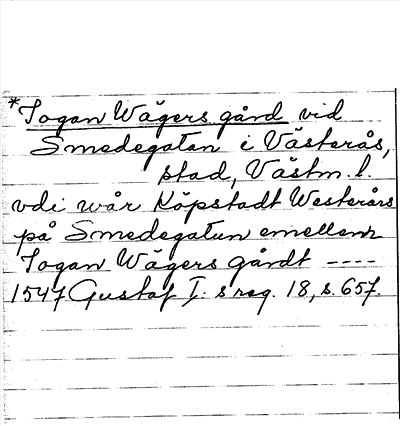 *Jogan Wägers gård vid
Smedegatan i Västerås,
stad, Västm. l.
vdi wår Köpstadt Westerårs
på Smedegatun emellenn
Jogan Wägers gårdt ----
1547 Gustaf I:s reg. 18, s. 657.